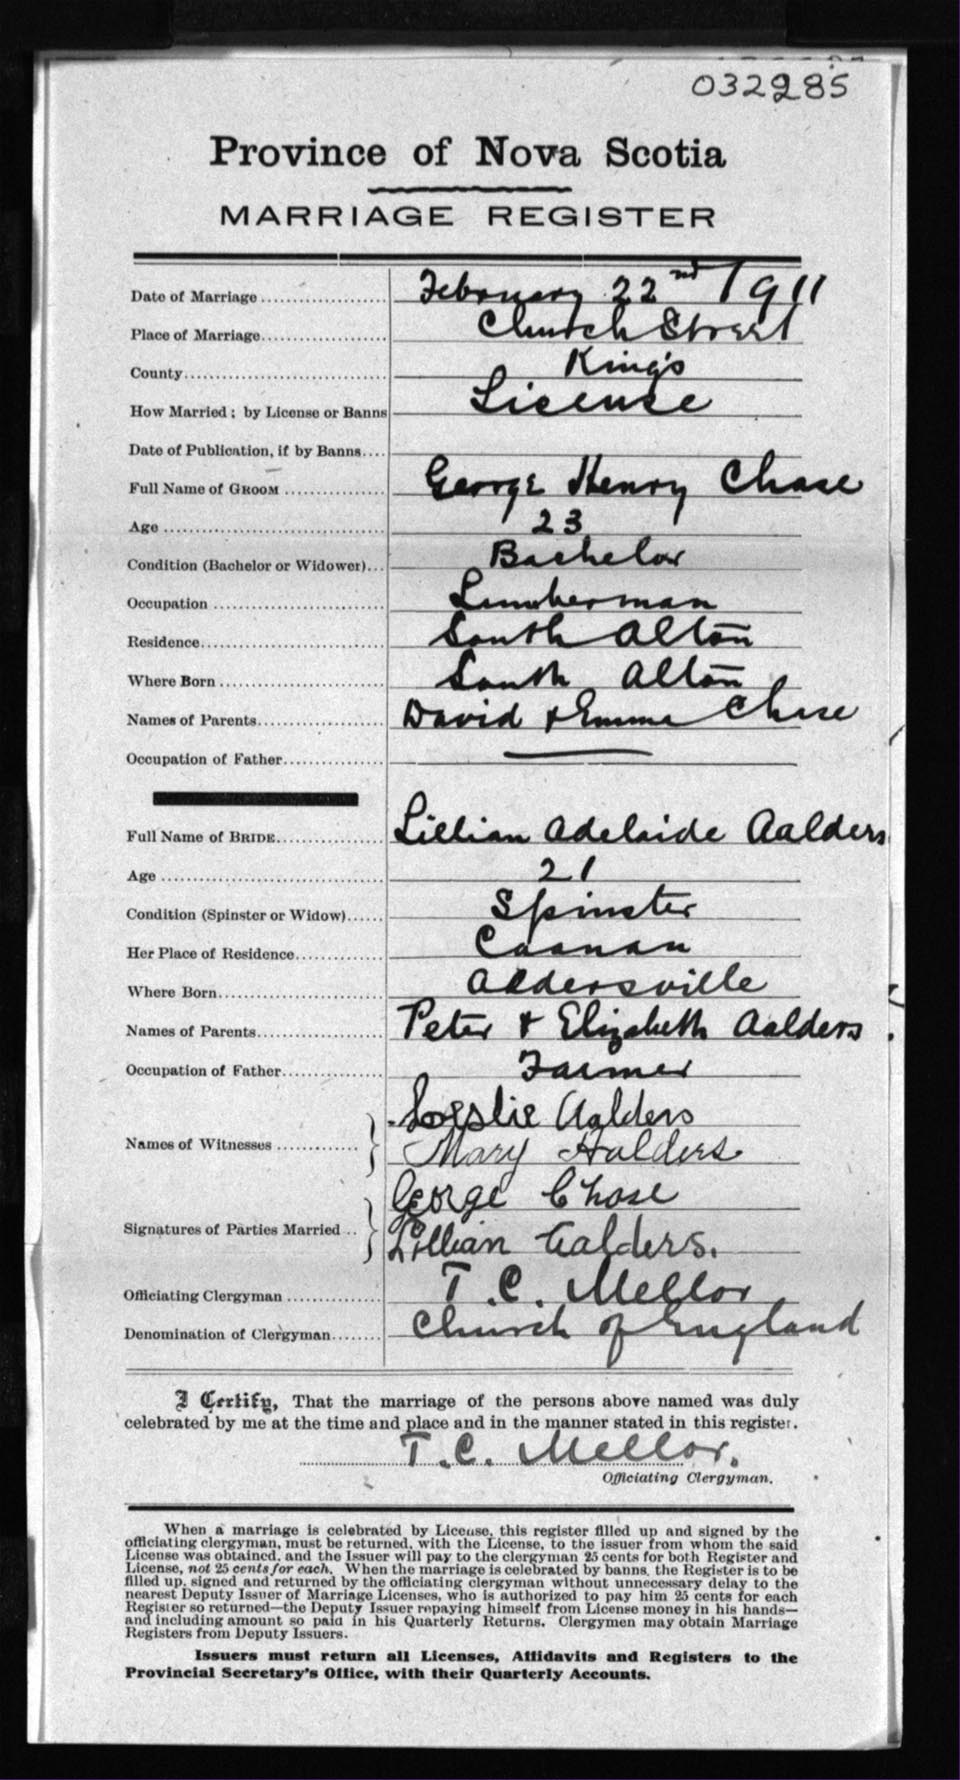 032285
Province of Nova Scotia
MARRIAGE REGISTER
Date of Marriage February 22nd 1911
Place of Marriage Church Street
County King's
How Married; by License or Banns License
Date of Publication, if by Banns
Full Name of GROOM George Henry Chase
Age 23
Condition (Bachelor or Widower) Bachelor
Occupation Lumberman
Residence South Alton
Where Born South Alton
Names of Parents David & Emma Chase
Occupation of Father
Full Name of BRIDE Lillian Adelaide Aalders
Age 21
Condition (Spinster or Widow) Spinster
Her Place of Residence Caanan
Where Born Aldersville
Names of Parents Peter & Elizabeth Aalders
Occupation of Father Farmer
Leslie Aalders
Names of Witnesses Mary Aalders
George Chase
Signatures of Parties Married Lillian Aalders.
Officiating Clergyman T. C. Mellor
Denomination of Clergyman Church of England
I Certify, That the marriage of the persons above named was duly
celebrated by me at the time and place and in the manner stated in this register.
T. C. Mellor.
Officiating Clergyman.
When a marriage is celebrated by License, this register filled up and signed by the
officiating clergyman, must be returned, with the License, to the issuer from whom the said
License was obtained, and the Issuer will pay to the clergyman 25 cents for both Register and
License, not 25 cents for each. When the marriage is celebrated by banns, the Register is to be
filled up, signed and returned by the officiating clergyman without unnecessary delay to the
nearest Deputy Issuer of Marriage Licenses, who is authorized to pay him 25 cents for each
Register so returned—the Deputy Issuer repaying himself from License money in his hands—
and including amount so paid in his Quarterly Returns. Clergymen may obtain Marriage
Registers from Deputy Issuers.
Issuers must return all Licenses, Affidavits and Registers to the
Provincial Secretary's Office, with their Quarterly Accounts.